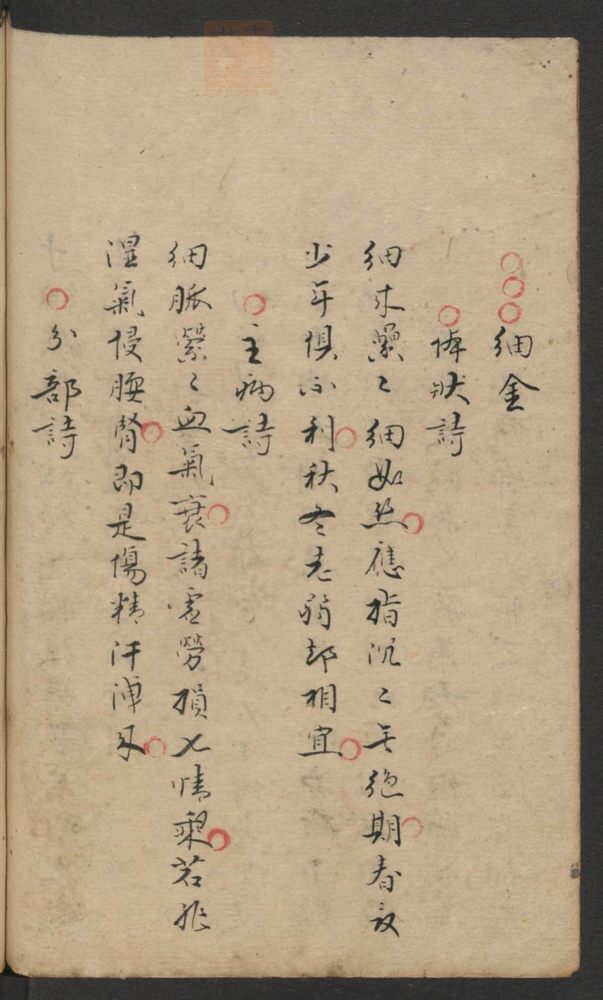 細金
体狀詩
細来纍〻細如丝應指沉〻无絕期春夏
少年俱不利秋冬老弱却相宜
主病詩
細脈縈〻血氣衰諸虛勞損七情乖若非
湿氣侵腰腎即是傷精汗泄来
分部詩